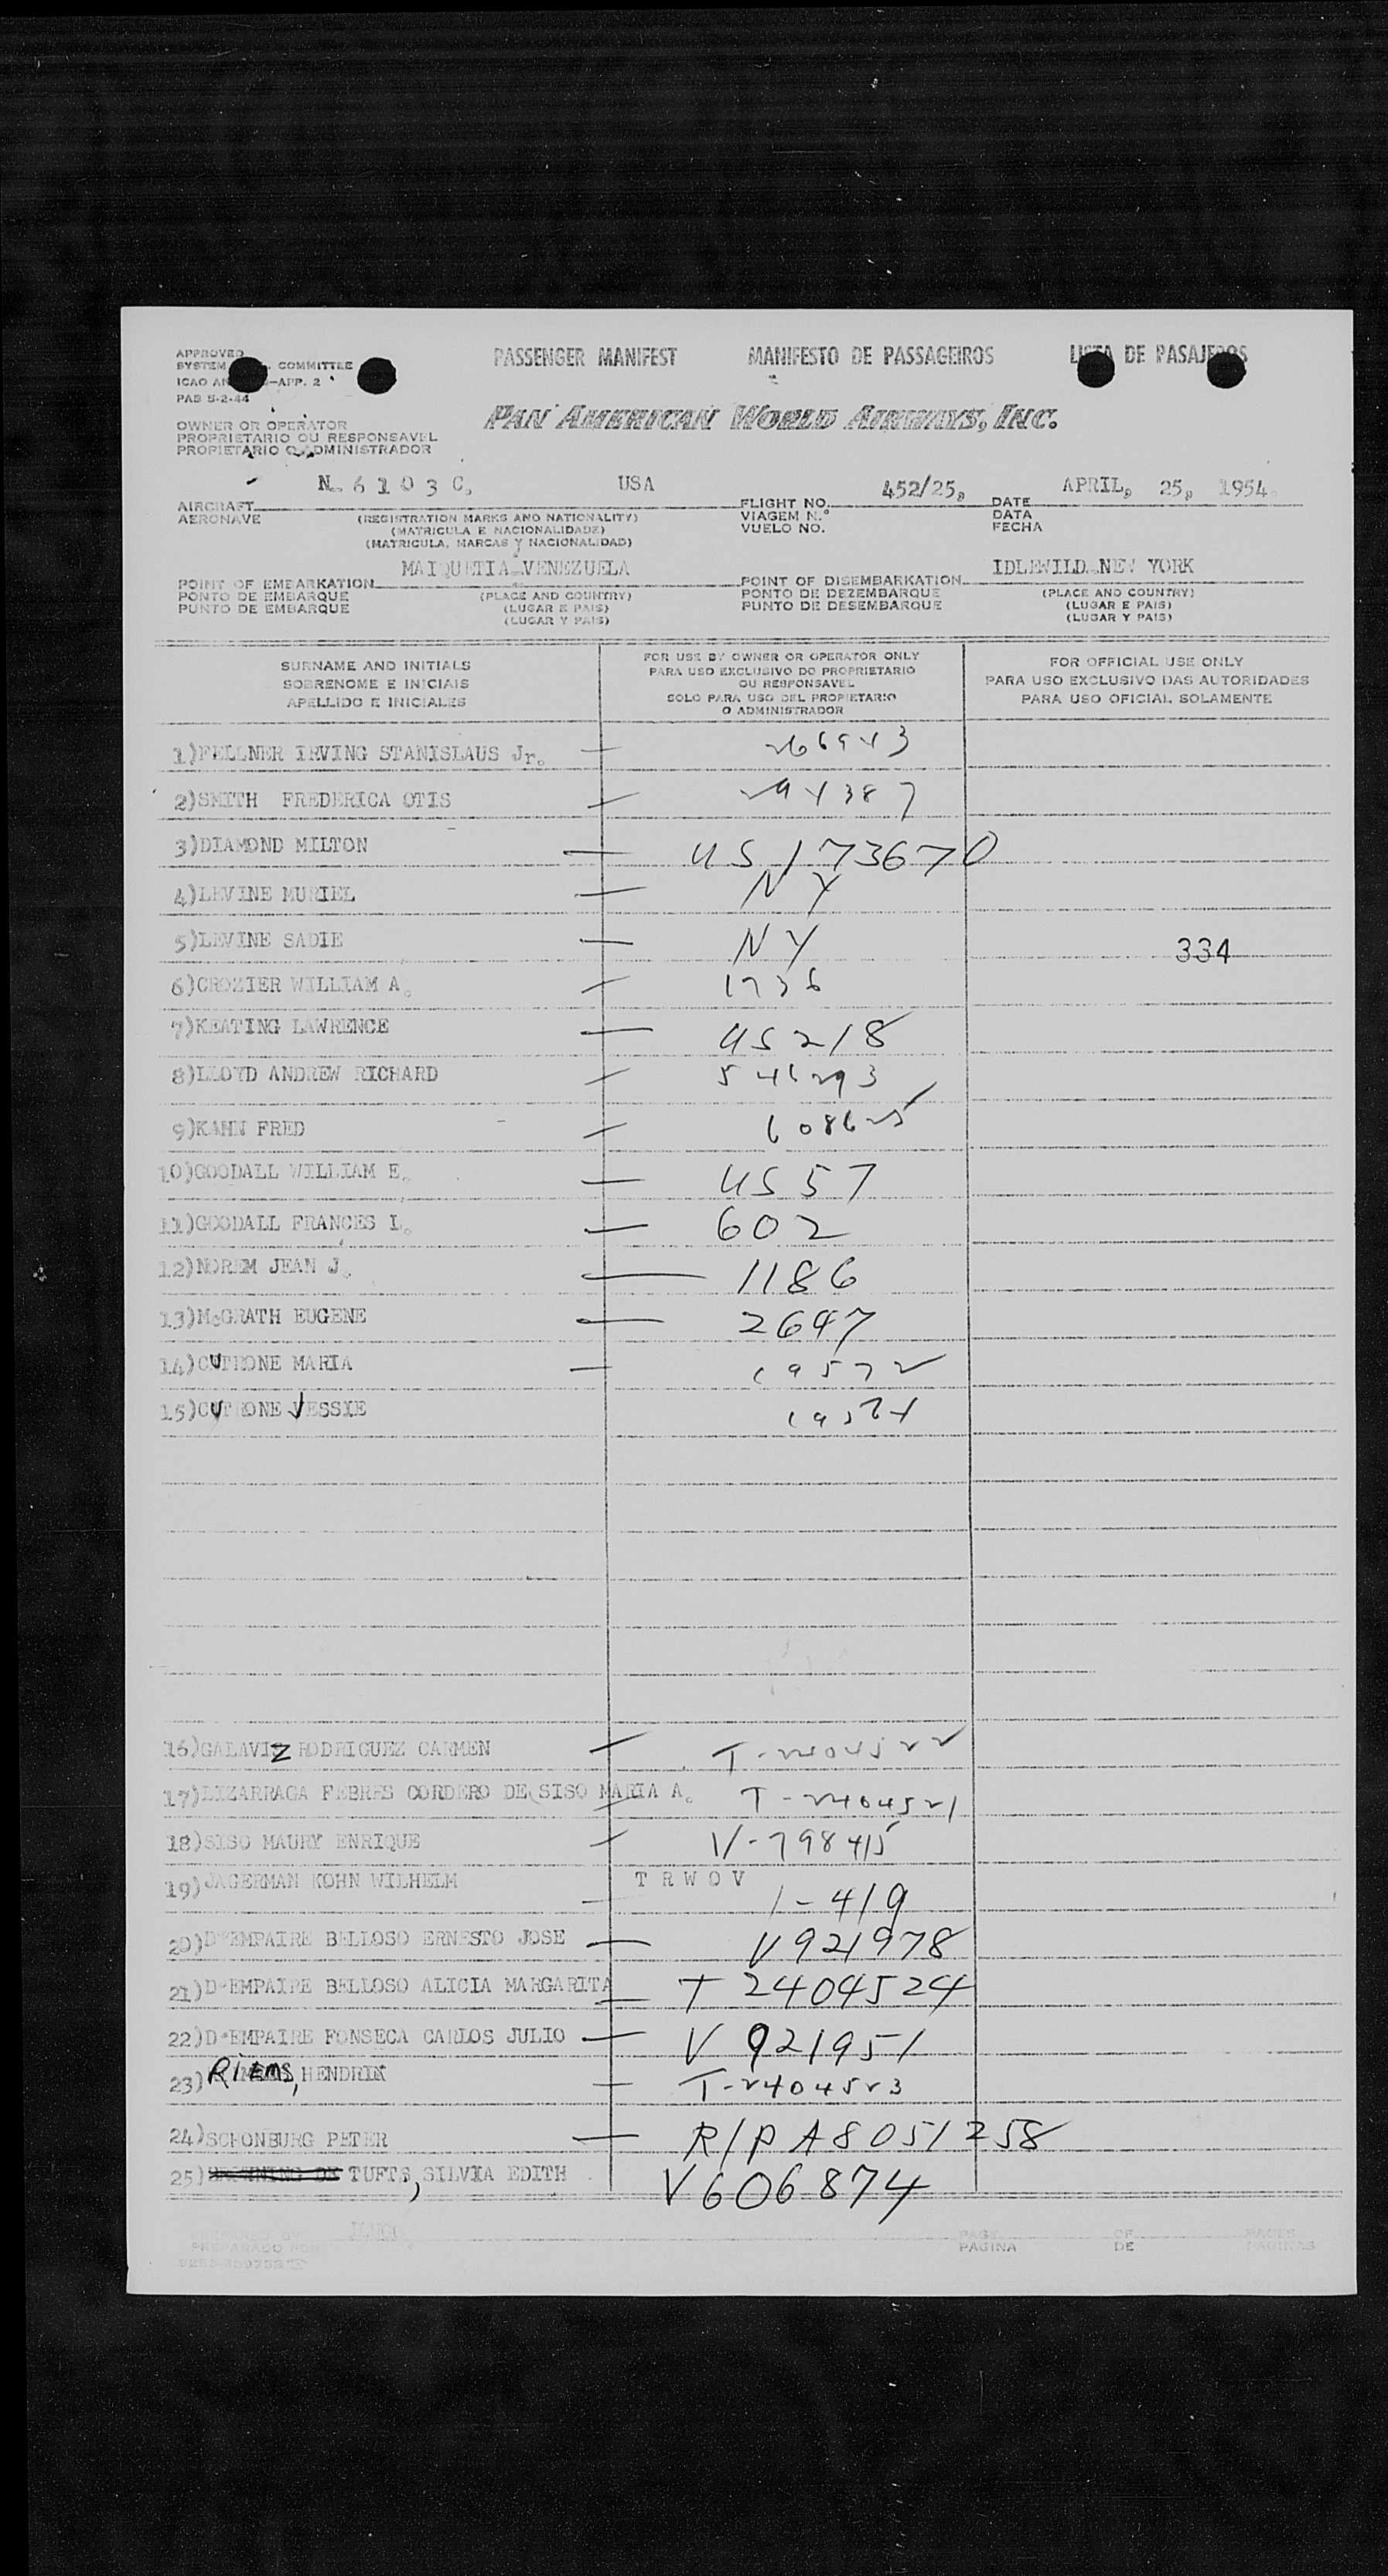 APPROVED
SYSTEM COMMITTEE
ICAO AN -APP. 2
PAB 5-2-44
PASSENGER MANIFEST MANIFESTO DE PASSAGEIROS LISTA DE PASAJEROS
PAN AMERICAN WORLD AIRWAYS, INC.
OWNER OR OPERATOR
PROPRIETARIO OU RESPONSAVEL
PROPIETARIO O ADMINISTRADOR
N. 6 1 0 3 C. USA 452/25, APRIL, 25, 1954.
AIRCRAFT FLIGHT NO. DATE
AERONAVE (REGISTRATION MARKS AND NATIONALITY) VIAGEM N.° DATA
(MATRICULA E NACIONALIDADE) VUELO NO. FECHA
(MATRICULA, MARCAS Y NACIONALIDAD)
MAIQUETIA VENEZUELA IDLEWILD NEW YORK
POINT OF EMBARKATION POINT OF DISEMBARKATION
PONTO DE EMBARQUE (PLACE AND COUNTRY) PONTO DE DEZEMBARQUE (PLACE AND COUNTRY)
PUNTO DE EMBARQUE (LUGAR E PAIS) PUNTO DE DESEMBARQUE (LUGAR E PAIS)
(LUGAR Y PAIS) (LUGAR Y PAIS)
SURNAME AND INITIALS
SOBRENOME E INICIAIS
APELLIDO E INICIALES
FOR USE BY OWNER OR OPERATOR ONLY
PARA USO EXCLUSIVO DO PROPRIETARIO
OU RESPONSAVEL
SOLO PARA USO DEL PROPIETARIO
O ADMINISTRADOR
FOR OFFICIAL USE ONLY
PARA USO EXCLUSIVO DAS AUTORIDADES
PARA USO OFICIAL SOLAMENTE
1) FELLNER IRVING STANISLAUS Jr. — 266943
2) SMITH FREDERICA OTIS — 294387
3) DIAMOND MILTON — US 173670
4) LEVINE MURIEL — NY
5) LEVINE SADIE — NY 334
6) CROZIER WILLIAM A. — 1736
7) KEATING LAWRENCE — US 218
8) LLOYD ANDREW RICHARD — 546293
9) KAHN FRED — 608625
10) GOODALL WILLIAM E. — US 57
11) GOODALL FRANCES L. — 602
12) NOREM JEAN J. — 1186
13) McGRATH EUGENE — 2647
14) CUTRONE MARIA — 19572
15) CUTRONE JESSIE 19574
16) GALAVIZ RODRIGUEZ CARMEN — T-2404522
17) LIZARRAGA FEBRES CORDERO DE SISO MARIA A. — T-2404521
18) SISO MAURY ENRIQUE — V-798415
19) JAGERMAN KOHN WILHELM — T R W O V 1-419
20) D'EMPAIRE BELLOSO ERNESTO JOSE — V921978
21) D'EMPAIRE BELLOSO ALICIA MARGARITA — T 2404524
22) D'EMPAIRE FONSECA CARLOS JULIO — V 921951
23) RiEMS, HENDRIK — T-2404523
24) SCHONBURG PETER — R/P A8051258
25) TUFTS, SILVIA EDITH V606874
PREPARADO POR PAGINA DE PAGINAS